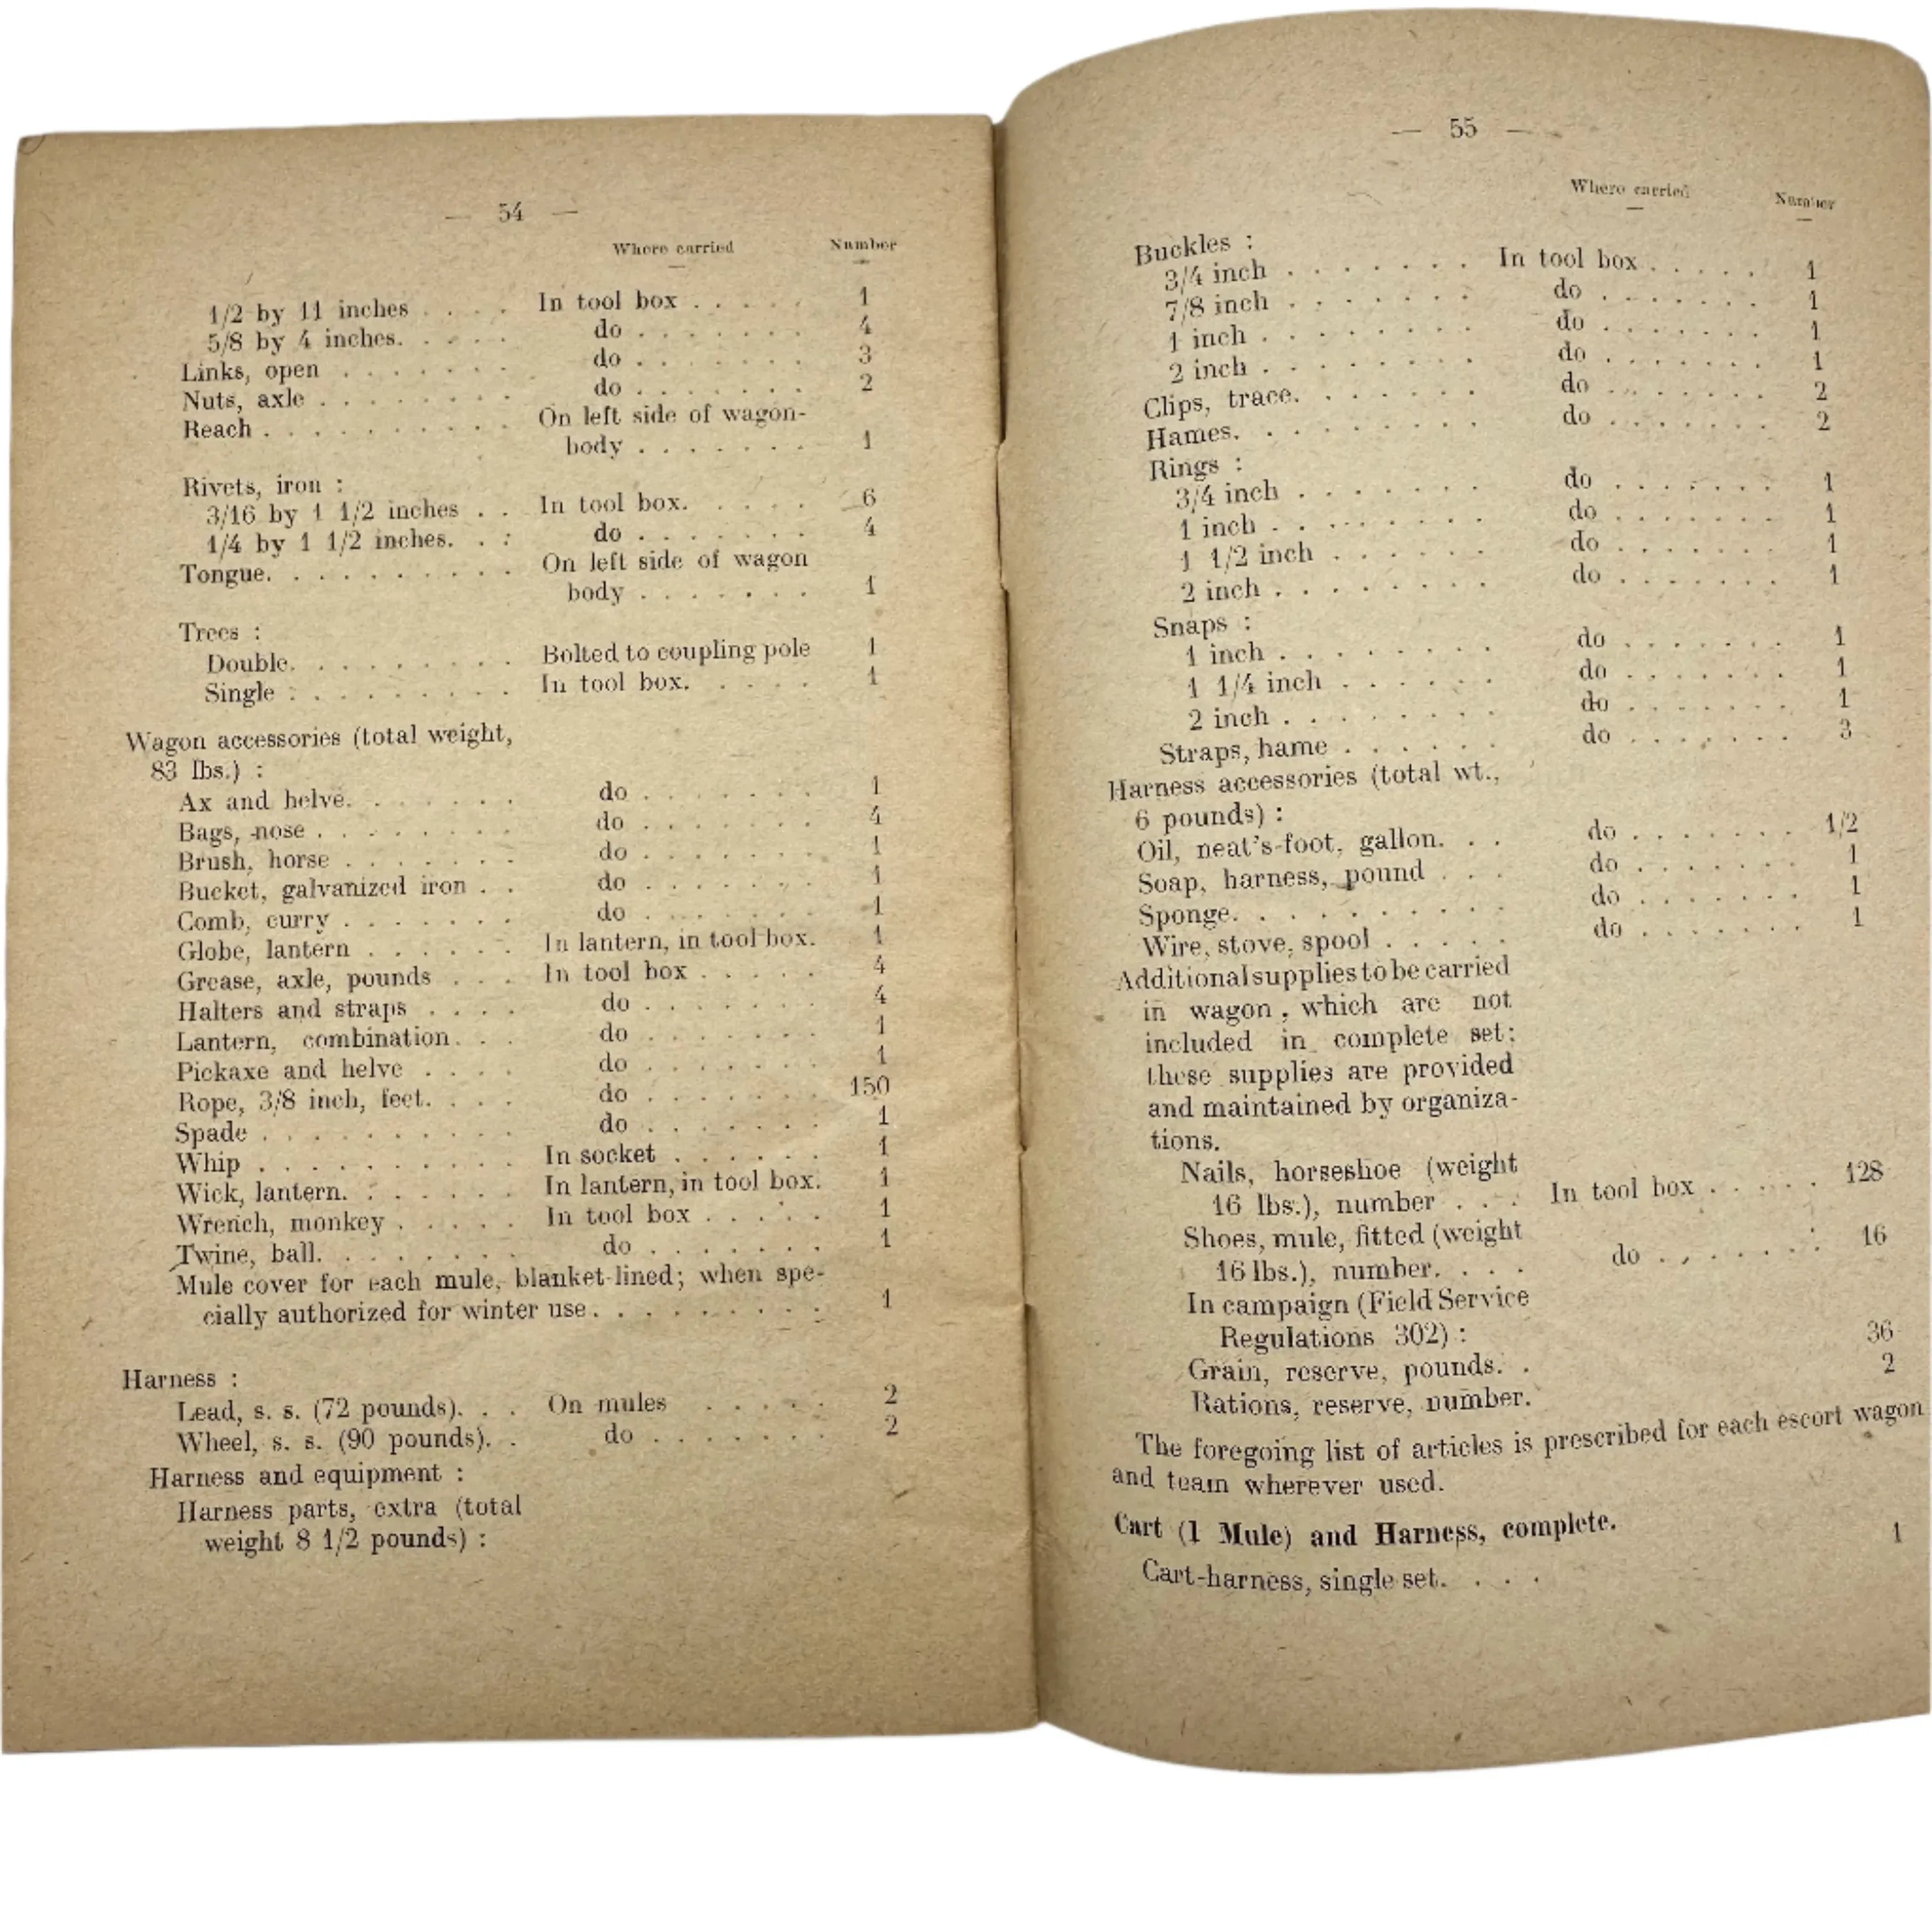 — 54 —
Where carried Number
1/2 by 11 inches . . . . In tool box . . . . . 1
5/8 by 4 inches. . . . . do . . . . . . . 4
Links, open . . . . . . . do . . . . . . . 3
Nuts, axle . . . . . . . . do . . . . . . . 2
Reach . . . . . . . . . . On left side of wagon-
body . . . . . . . 1
Rivets, iron :
3/16 by 1 1/2 inches . . In tool box. . . . . 6
1/4 by 1 1/2 inches. . . do . . . . . . . 4
Tongue. . . . . . . . . . On left side of wagon
body . . . . . . . 1
Trees :
Double. . . . . . . . . Bolted to coupling pole 1
Single . . . . . . . . . In tool box. . . . . 1
Wagon accessories (total weight,
83 lbs.) :
Ax and helve. . . . . . . do . . . . . . . 1
Bags, nose . . . . . . . . do . . . . . . . 4
Brush, horse . . . . . . . do . . . . . . . 1
Bucket, galvanized iron . . do . . . . . . . 1
Comb, curry . . . . . . . do . . . . . . . 1
Globe, lantern . . . . . . In lantern, in tool box. 1
Grease, axle, pounds . . . In tool box . . . . . 4
Halters and straps . . . . do . . . . . . . 4
Lantern, combination. . . do . . . . . . . 1
Pickaxe and helve . . . . do . . . . . . . 1
Rope, 3/8 inch, feet. . . . do . . . . . . . 150
Spade . . . . . . . . . . do . . . . . . . 1
Whip . . . . . . . . . . In socket . . . . . . 1
Wick, lantern. . . . . . . In lantern, in tool box. 1
Wrench, monkey . . . . . In tool box . . . . . 1
Twine, ball. . . . . . . . do . . . . . . . 1
Mule cover for each mule, blanket-lined; when spe-
cially authorized for winter use. . . . . . . . . 1
Harness :
Lead, s. s. (72 pounds). . . On mules . . . . . 2
Wheel, s. s. (90 pounds). . do . . . . . . . 2
Harness and equipment :
Harness parts, extra (total
weight 8 1/2 pounds) :
— 55 —
Where carried Number
Buckles :
3/4 inch . . . . . . . In tool box . . . . . 1
7/8 inch . . . . . . . do . . . . . . . 1
1 inch . . . . . . . . do . . . . . . . 1
2 inch . . . . . . . . do . . . . . . . 1
Clips, trace. . . . . . . do . . . . . . . 2
Hames. . . . . . . . . do . . . . . . . 2
Rings :
3/4 inch . . . . . . . do . . . . . . . 1
1 inch . . . . . . . . do . . . . . . . 1
1 1/2 inch . . . . . . do . . . . . . . 1
2 inch . . . . . . . . do . . . . . . . 1
Snaps :
1 inch . . . . . . . . do . . . . . . . 1
1 1/4 inch . . . . . . do . . . . . . . 1
2 inch . . . . . . . . do . . . . . . . 1
Straps, hame . . . . . . do . . . . . . . 3
Harness accessories (total wt.,
6 pounds) :
Oil, neat's-foot, gallon. . . do . . . . . . . 1/2
Soap, harness, pound . . . do . . . . . . . 1
Sponge. . . . . . . . . . do . . . . . . . 1
Wire, stove, spool . . . . . do . . . . . . . 1
Additional supplies to be carried
in wagon, which are not
included in complete set;
these supplies are provided
and maintained by organiza-
tions.
Nails, horseshoe (weight
16 lbs.), number . . . In tool box . . . . . 128
Shoes, mule, fitted (weight
16 lbs.), number. . . . do . . . . . . . 16
In campaign (Field Service
Regulations 302) :
Grain, reserve, pounds. . 36
Rations, reserve, number. 2
The foregoing list of articles is prescribed for each escort wagon
and team wherever used.
Cart (1 Mule) and Harness, complete.
Cart-harness, single set. . . . 1